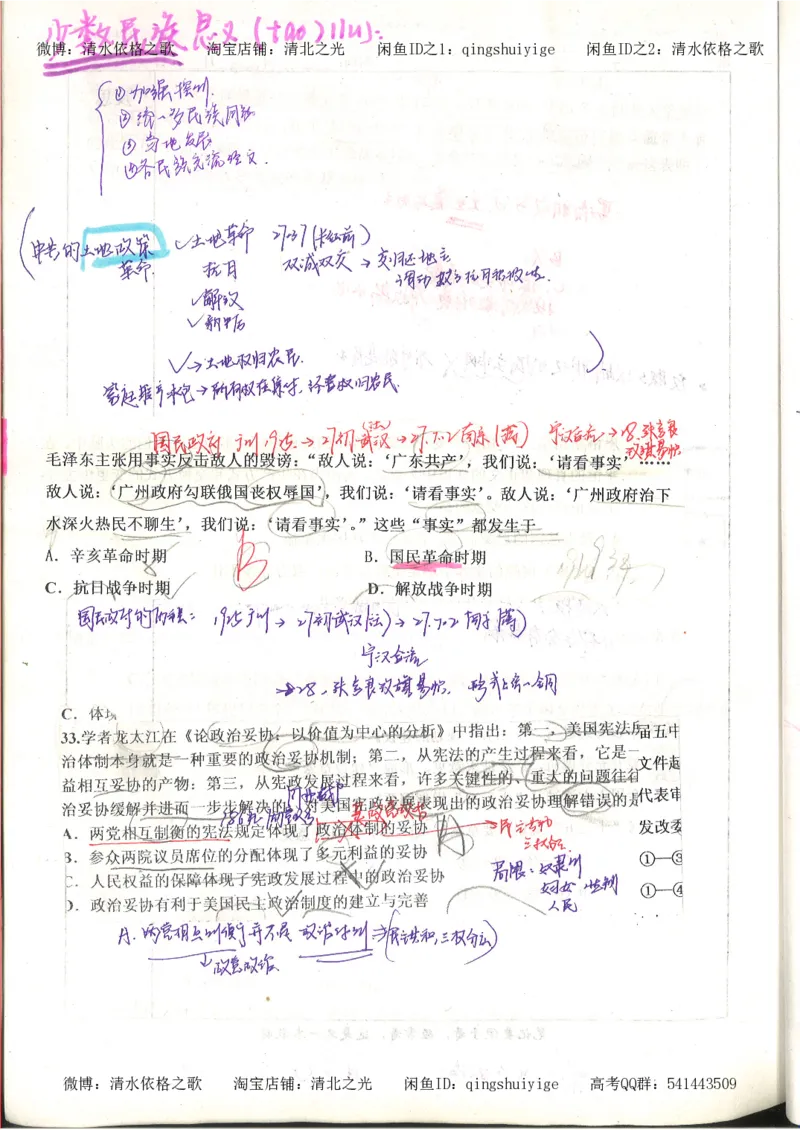 少数民族意义(tao)llu):
微博：清水依格之歌 淘宝店铺：清北之光 闲鱼ID之1：qingshuiyige 闲鱼ID之2：清水依格之歌
①加强控制.
②统一多民族国家
③当地发展
④各民族交流
中共的土地政策
革命
土地革命 27-37
抗日 双减双交 → 地主
解放
新中国
→土地权归农民.
家庭联产承包→所有权在集体,经营权归农民.
国民政府 广州1925→27初武汉(汪)→27.7.2南京(蒋) 宁汉合流→28.张学良
改旗易帜
毛泽东主张用事实反击敌人的毁谤：“敌人说：‘广东共产’，我们说：‘请看事实’……
敌人说：‘广州政府勾联俄国丧权辱国’，我们说：‘请看事实’。敌人说：‘广州政府治下
水深火热民不聊生’，我们说：‘请看事实’。”这些“事实”都发生于
A．辛亥革命时期 B．国民革命时期
B
C．抗日战争时期 D．解放战争时期
国民政府的 1925广州→27初武汉(汪)→27.7.2南京(蒋)
宁汉合流
→28.张学良改旗易帜.
C．体
33.学者龙太江在《论政治妥协：以价值为中心的分析》中指出：第一，美国宪法所
届五中
治体制本身就是一种重要的政治妥协机制；第二，从宪法的产生过程来看，它是一
文件起
益相互妥协的产物；第三，从宪政发展过程来看，许多关键性的、重大的问题往往
代表审
治妥协缓解并进而一步步解决的。对美国宪政发展表现出的政治妥协理解错误的是
A．两党相互制衡的宪法规定体现了政治体制的妥协
A
→民主共和
三权分立
发改委
B．参众两院议员席位的分配体现了多元利益的妥协
①—③
局限：奴隶制
C．人民权益的保障体现了宪政发展过程中的政治妥协
妇女
①—④
D．政治妥协有利于美国民主政治制度的建立与完善
人民
A.两党相互制衡并不是政治体制⇒(民主共和,三权分立)
↓政党政治
微博：清水依格之歌 淘宝店铺：清北之光 闲鱼ID：qingshuiyige 高考QQ群：541443509